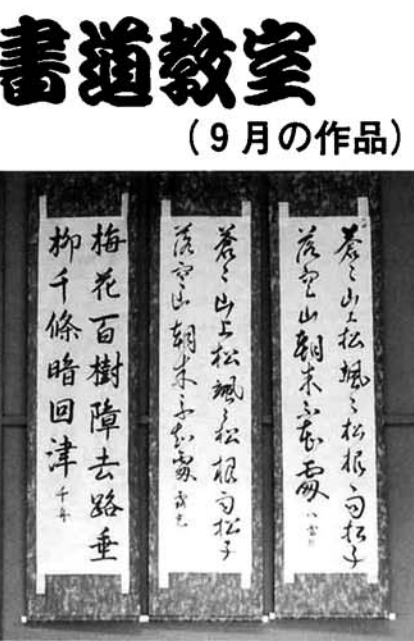 書道教室
(9月の作品)
蒼々山上松颯々松根雨松子
落空山朝来不知處
蒼々山上松颯々松根雨松子
落空山朝来不知處
梅花百樹障去路垂
柳千條暗回津